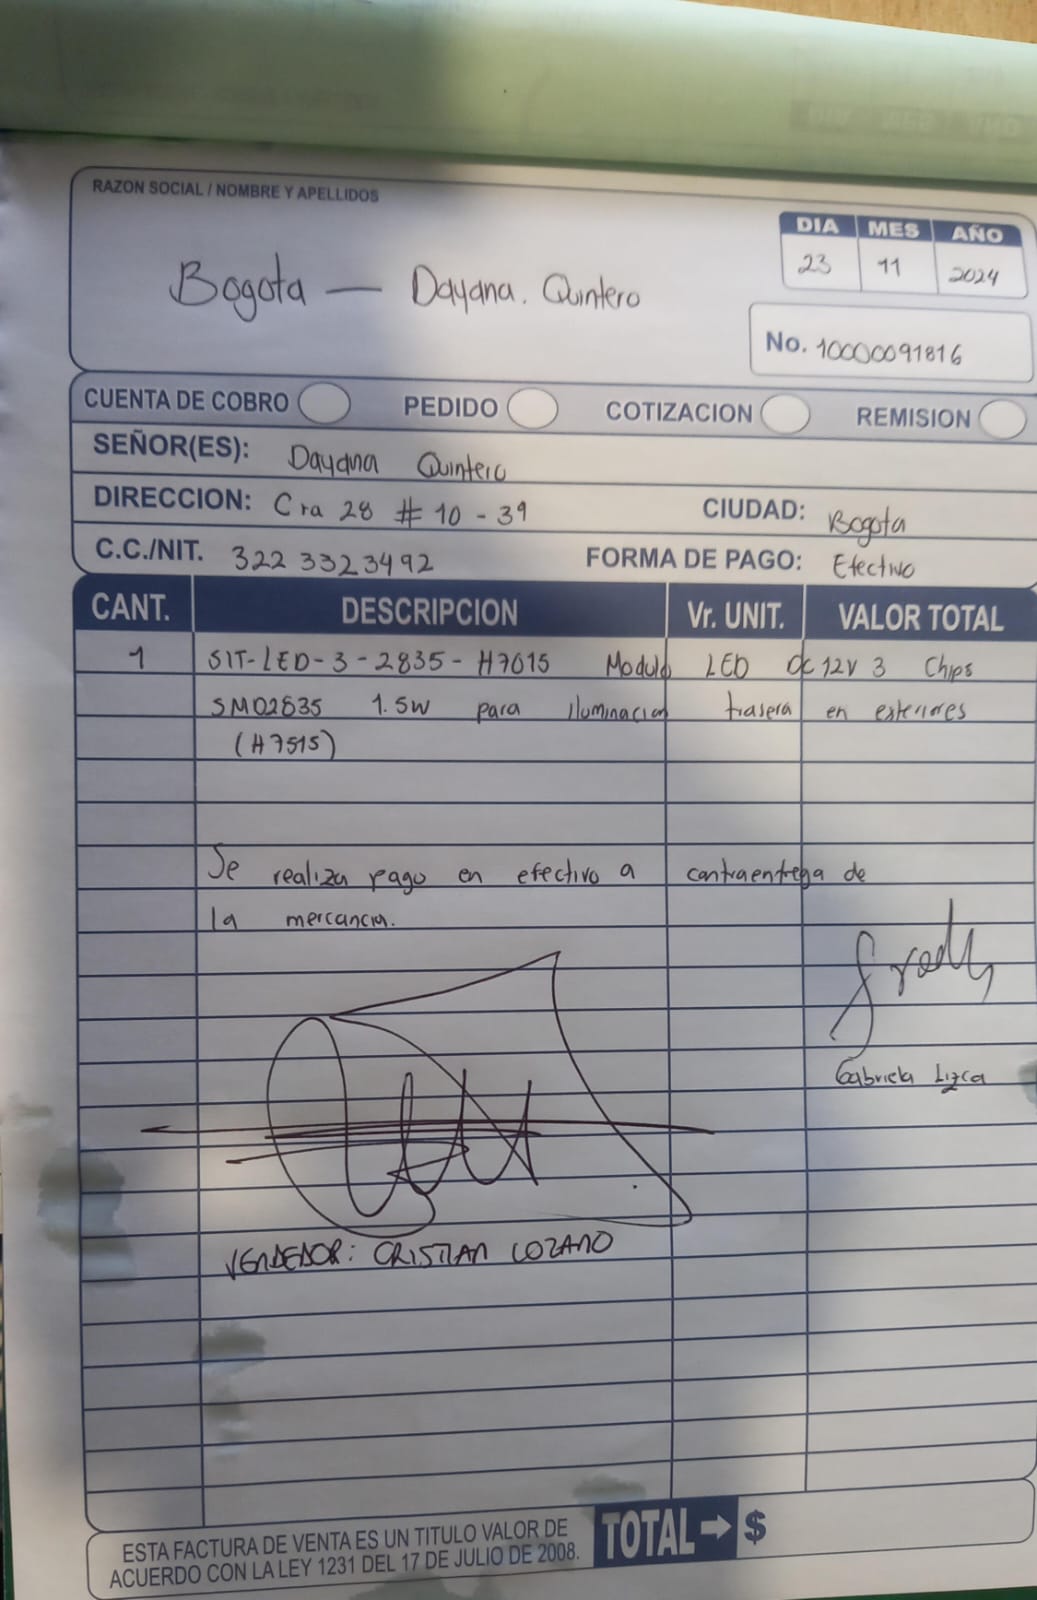 RAZON SOCIAL / NOMBRE Y APELLIDOS
DIA MES AÑO
23 11 2024
Bogota — Dayana. Quintero
No. 10000091816
CUENTA DE COBRO PEDIDO COTIZACION REMISION
SEÑOR(ES): Dayana Quintero
DIRECCION: Cra 28 # 10 - 39 CIUDAD: Bogota
C.C./NIT. 322 3323492 FORMA DE PAGO: Efectivo
CANT. DESCRIPCION Vr. UNIT. VALOR TOTAL
1 SIT-LED-3-2835-H7015 Modulo LED DC 12V 3 Chips
SMD2835 1.5W para iluminacion trasera en exteriores
(H7515)
Se realiza pago en efectivo a contraentrega de
la mercancia.
Gabriela
VENDEDOR: CRISTIAN LOZANO
ESTA FACTURA DE VENTA ES UN TITULO VALOR DE
ACUERDO CON LA LEY 1231 DEL 17 DE JULIO DE 2008.
TOTAL → $